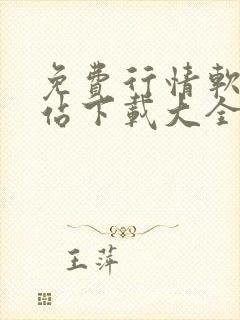 免費行情軟
佔下載大全
王萍